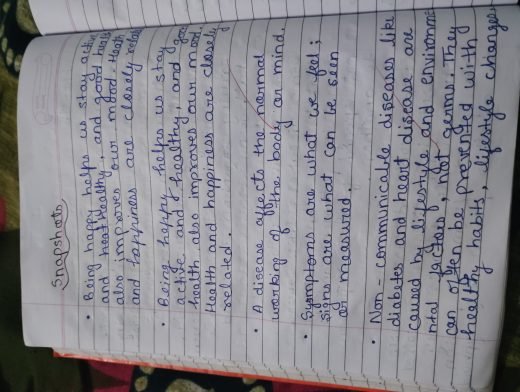 Snapshots
• Being happy helps us stay active
and healthy, and good
also improves our mood. Health
and happiness are closely
• Being happy helps us stay
active and healthy, and good
health also improves our mood
Health and happiness are closely
related.
• A disease affects the normal
working of the body or mind.
• Symptoms are what we feel;
signs are what can be seen
or measured.
• Non-communicable diseases like
diabetes and heart disease are
caused by lifestyle and environme
ntal factors, not germs. They
can often be prevented with
healthy habits, lifestyle changes